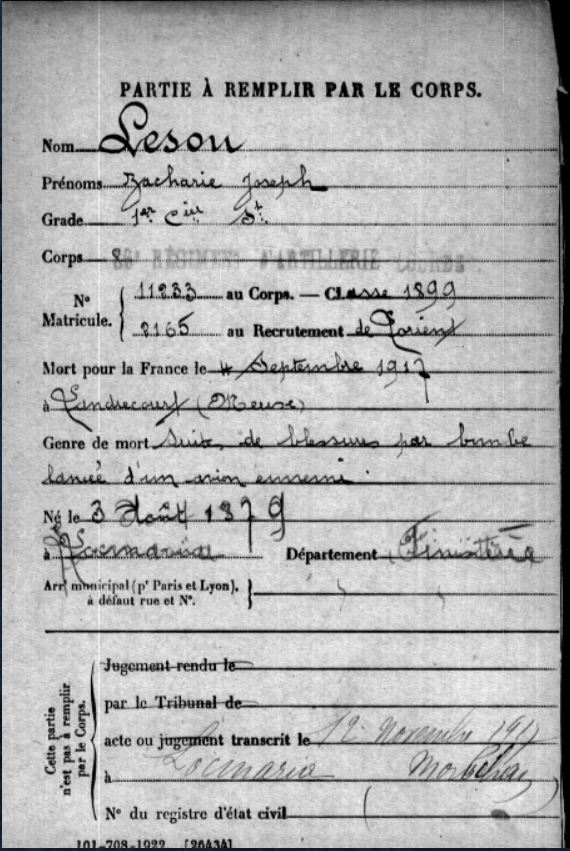 PARTIE À REMPLIR PAR LE CORPS.
Nom Lesou
Prénoms Zacharie Joseph
Grade 1er Cier St
Corps 8 RÉGIMENT D'ARTILLERIE
N° Matricule. 11233 au Corps. — Classe 1899
2165 au Recrutement de Lorient
Mort pour la France le 4 Septembre 1917
à Landrecourt (Meuse)
Genre de mort Suite de blessures par bombe
lancée d'un avion ennemi.
Né le 3 Août 1879
à Locmaria Département Finistère
Arrt municipal (pr Paris et Lyon),
à défaut rue et N°.
Cette partie n'est pas à remplir par le Corps.
Jugement rendu le
par le Tribunal de
acte ou jugement transcrit le 12 Novembre 1917
à Locmaria Morbihan
N° du registre d'état civil
101-708-1922. [26434]